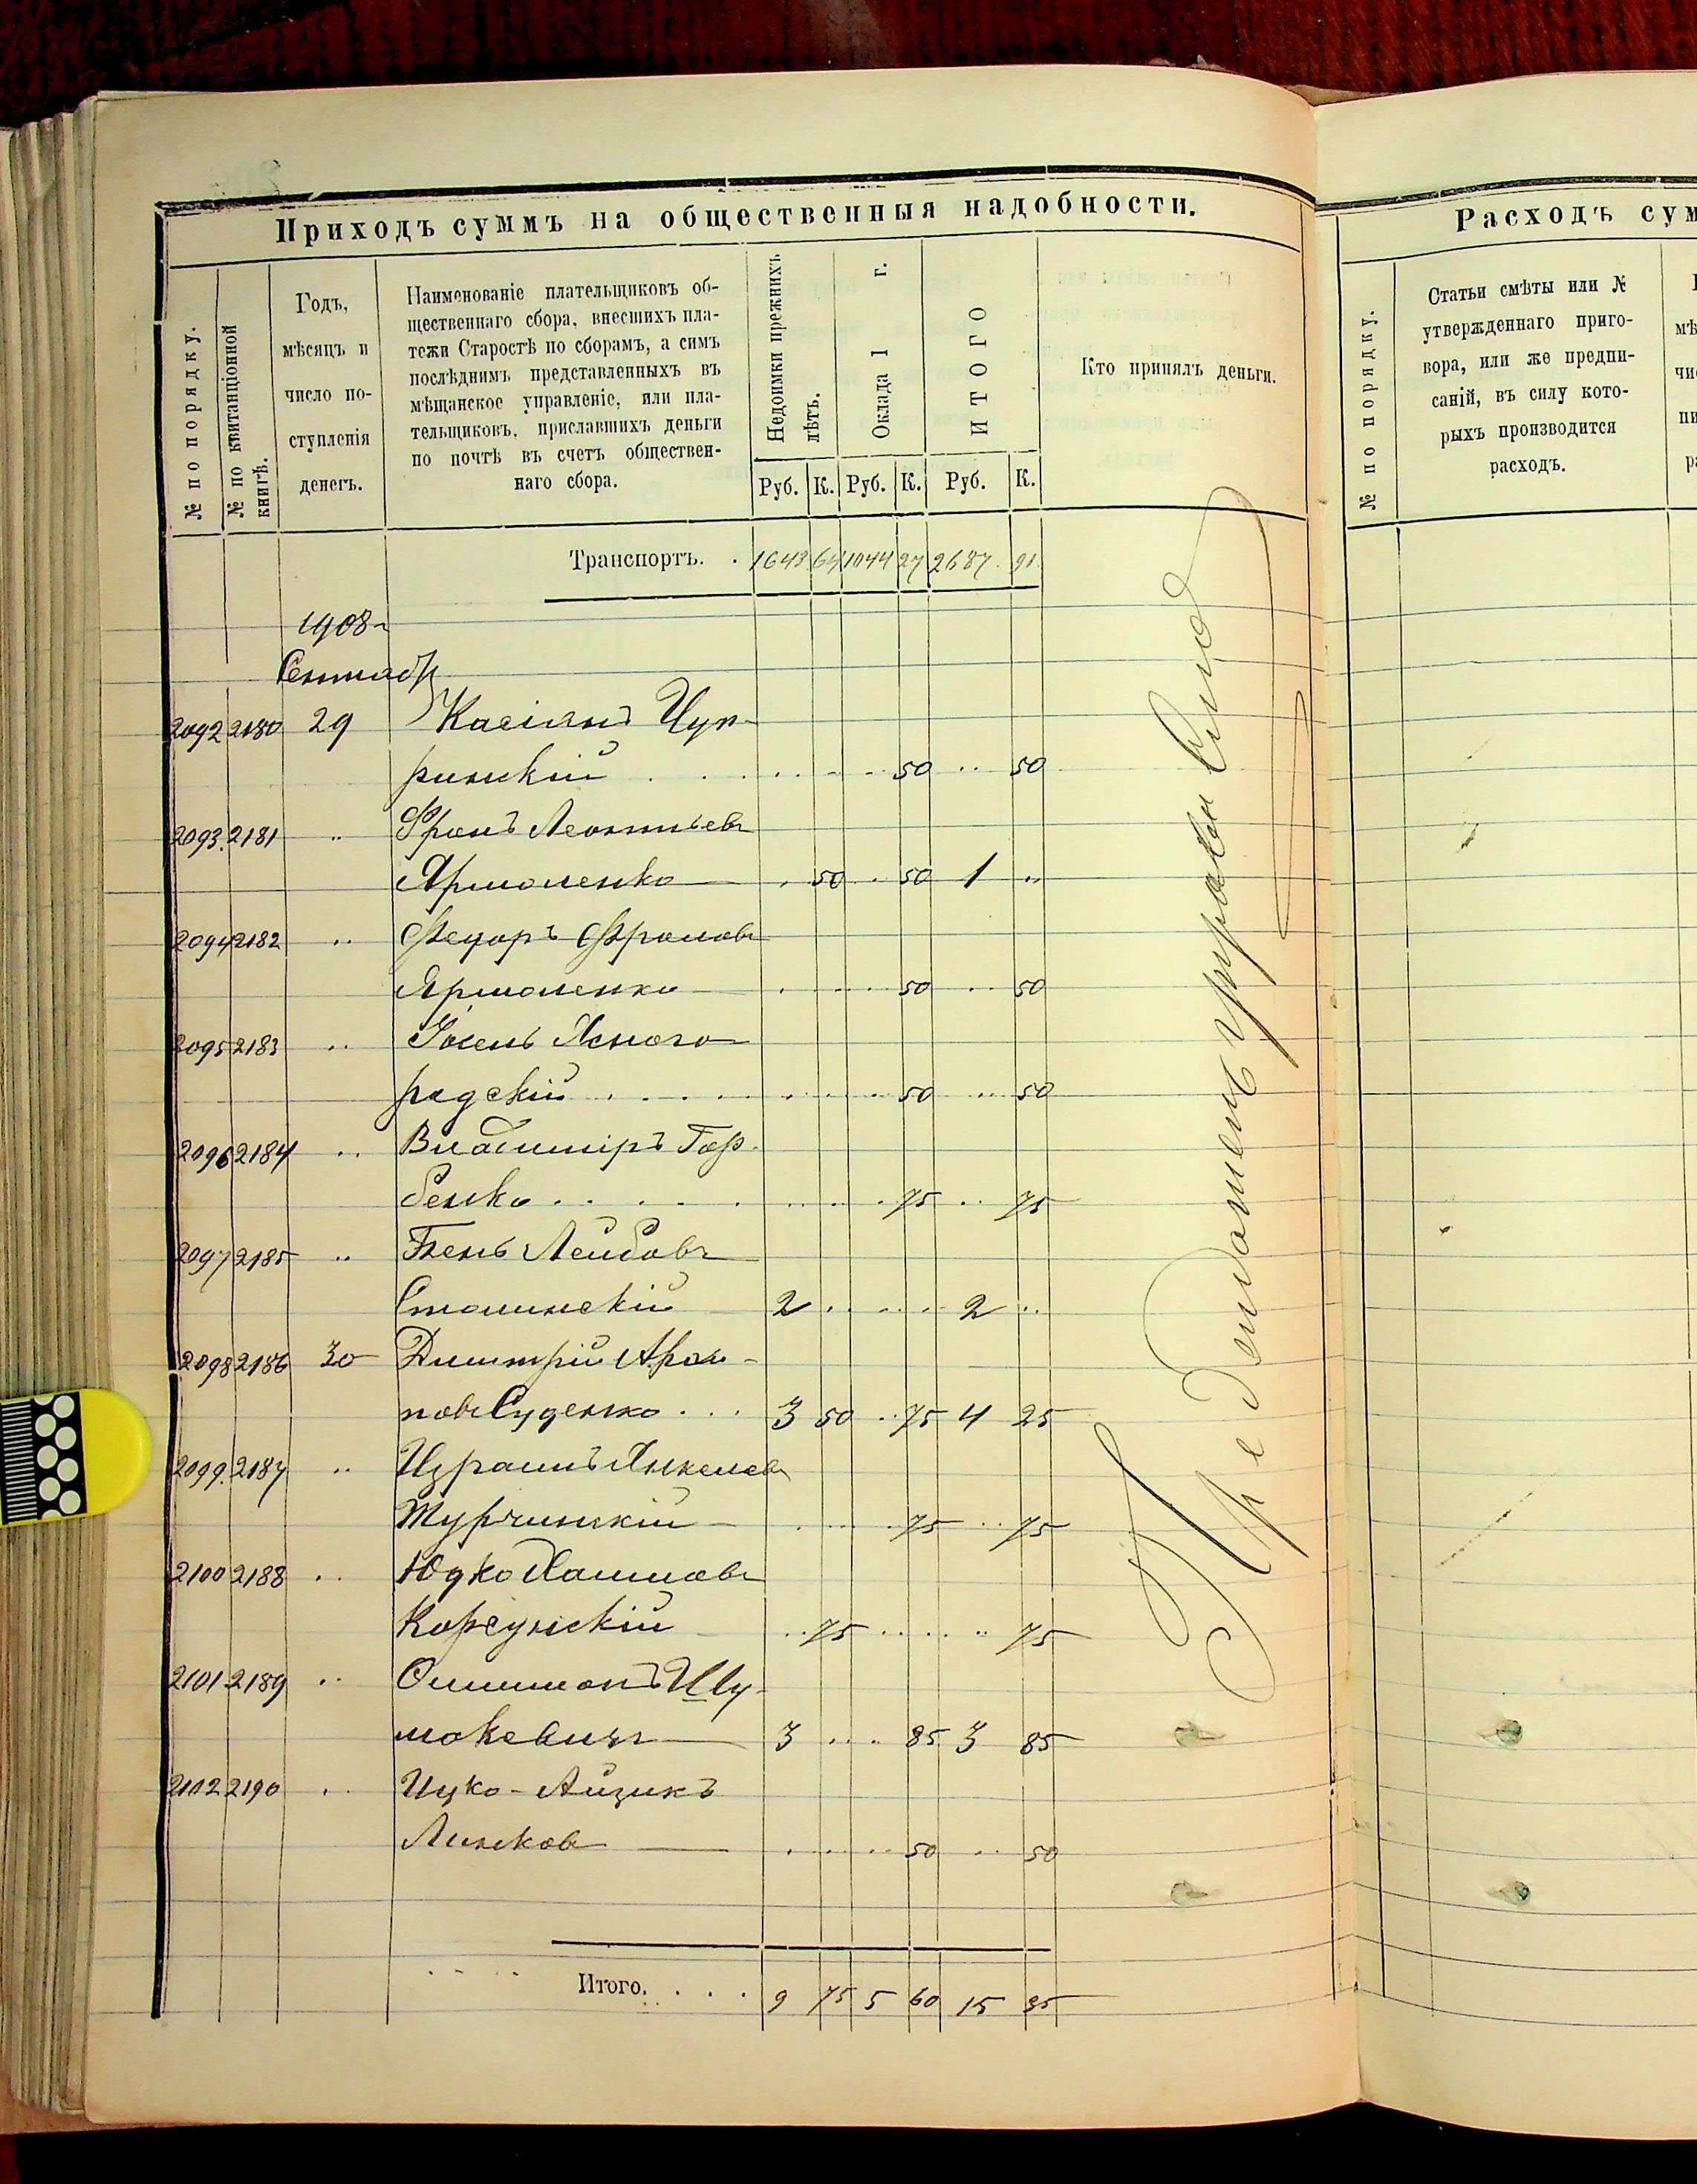 Приходъ суммъ на общественныя надобности.
№ по порядку.
№ по квитанціонной книгѣ.
Годъ,
мѣсяцъ и
число по-
ступленія
денегъ.
Наименованіе плательщиковъ об-
щественнаго сбора, внесшихъ пла-
тежи Старостѣ по сборамъ, а симъ
послѣднимъ представленныхъ въ
мѣщанское управленіе, или пла-
тельщиковъ, приславшихъ деньги
по почтѣ въ счетъ обществен-
наго сбора.
Недоимки прежнихъ лѣтъ.
Оклада 1 г.
ИТОГО
Руб. К. Руб. К. Руб. К.
Кто принялъ деньги.
Транспортъ. . 1643 64 1044 27 2687. 91.
1908
Сентябр
2092 2180 29 Касіянъ Чуп-
ринскій . . . . . . 50 .. 50
2093. 2181 .. Фролъ Леонтьевъ
Ярмоленко . 50 . 50 1 ..
2094 2182 .. Федоръ Фроловъ
Ярмоленко . . . . 50 .. 50
2095 2183 .. Іосель Ясного-
радскій . . . . . . . 50 .. 50
2096 2184 .. Владиміръ Гор-
бенко . . . . . . . 75 .. 75
2097 2185 .. Бенъ Лейбовъ
Столинскій 2 .. .. .. 2 ..
2098 2186 30 Димитрій
Суденко . . . 3 50 .. 75 4 25
2099. 2187 .. Израиль Янкелевъ
Турчинскій . . . . 75 .. 75
2100 2188 .. Юдко Хаимовъ
Корсунскій .. 75 . . . .. 75
2101 2189 .. Филимонъ Шу-
макевичъ 3 .. . . 85 3 85
2102 2190 .. Ицко-Айзикъ
Линсковъ . . . . 50 .. 50
Итого. . . . 9 75 5 60 15 35
Расходъ сум
№ по порядку.
Статьи смѣты или №
утвержденнаго приго-
вора, или же предпи-
саній, въ силу кото-
рыхъ производится
расходъ.
мѣ
чи